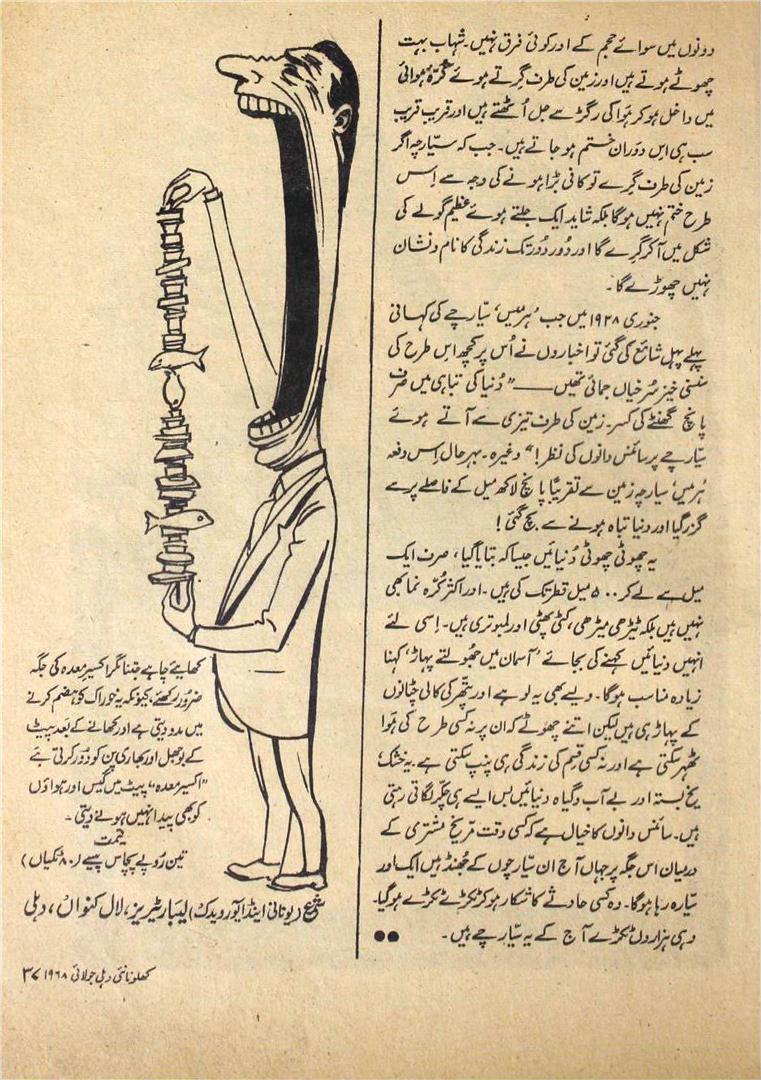 دونوں میں سوائے حجم کے اور کوئی فرق نہیں۔ شہاب بہت
چھوٹے ہوتے ہیں اور زمین کی طرف گرتے ہوئے کُرّۂ ہوائی
میں داخل ہو کر ہوا کی رگڑ سے جل اُٹھتے ہیں اور قریب قریب
سب ہی اس دَوران ختم ہو جاتے ہیں۔ جب کہ سیّارچہ اگر
زمین کی طرف گرے تو کافی بڑا ہونے کی وجہ سے اِس
طرح ختم نہیں ہوگا بلکہ شاید ایک جلتے ہوئے عظیم گولے کی
شکل میں آکر گرے گا اور دُور دُور تک زندگی کا نام و نشان
نہیں چھوڑے گا۔
جنوری ۱۹۳۸ میں جب ’ہرمیں‘ سیّارچے کی کہانی
پہلے پہل شائع کی گئی تو اخباروں نے اُس پر کچھ اس طرح کی
سنسنی خیز سُرخیاں جمائی تھیں —— ”دُنیا کی تباہی میں صرف
پانچ گھنٹے کی کسر۔ زمین کی طرف تیزی سے آتے ہوئے
سیّارچے پر سائنس دانوں کی نظر!“ وغیرہ۔ بہرحال اِس دفعہ
’ہرمیں‘ سیارچہ زمین سے تقریباً پانچ لاکھ میل کے فاصلے پر سے
گزر گیا اور دنیا تباہ ہونے سے بچ گئی!
یہ چھوٹی چھوٹی دُنیائیں جیسا کہ بتایا گیا، صرف ایک
میل سے لے کر ۵۰۰ میل قطر تک کی ہیں۔ اور اکثر کُرّہ نما بھی
نہیں ہیں بلکہ ٹیڑھی میڑھی، کٹی پھٹی اور لمبوتری ہیں۔ اِسی لئے
انہیں دنیائیں کہنے کی بجائے ’آسمان میں جھولتے پہاڑ‘ کہنا
زیادہ مناسب ہوگا۔ ویسے بھی یہ لوہے اور پتھر کی کالی چٹانوں
کے پہاڑ ہی ہیں لیکن اتنے چھوٹے کہ ان پر نہ کسی طرح کی ہوا
ٹھہر سکتی ہے اور نہ کسی قسم کی زندگی ہی پنپ سکتی ہے۔ یہ خشک
یخ بستہ اور بے آب و گیاہ دنیائیں بس ایسے ہی چکّر لگاتی رہتی
ہیں۔ سائنس دانوں کا خیال ہے کہ کسی وقت مریخ و مشتری کے
درمیان اس جگہ پر جہاں آج ان سیّارچوں کے جھنڈ ہیں ایک اور
سیّارہ رہا ہوگا۔ وہ کسی حادثے کا شکار ہو کر ٹکڑے ٹکڑے ہوگیا۔
وہی ہزاروں ٹکڑے آج کے یہ سیّارچے ہیں۔ ●●
کھائیے چاہے جتنا مگر اکسیر معدہ کی جگہ
ضرور رکھئے، کیونکہ یہ خوراک کو ہضم کرنے
میں مدد دیتی ہے اور کھانے کے بعد پیٹ
کے بوجھل اور بھاری پن کو دُور کرتی ہے
”اکسیر معدہ“، پیٹ میں گیس اور ہواؤں
کو بھی پیدا نہیں ہونے دیتی۔
قیمت
تین رُوپے پچاس پیسے (۸۰ ٹکیاں)
شمع (یونانی اینڈ آیورویدک) لیبارٹیریز، لال کنواں، دہلی
کھلونا نئی دہلی جولائی ۱۹۶۸ ۳۷